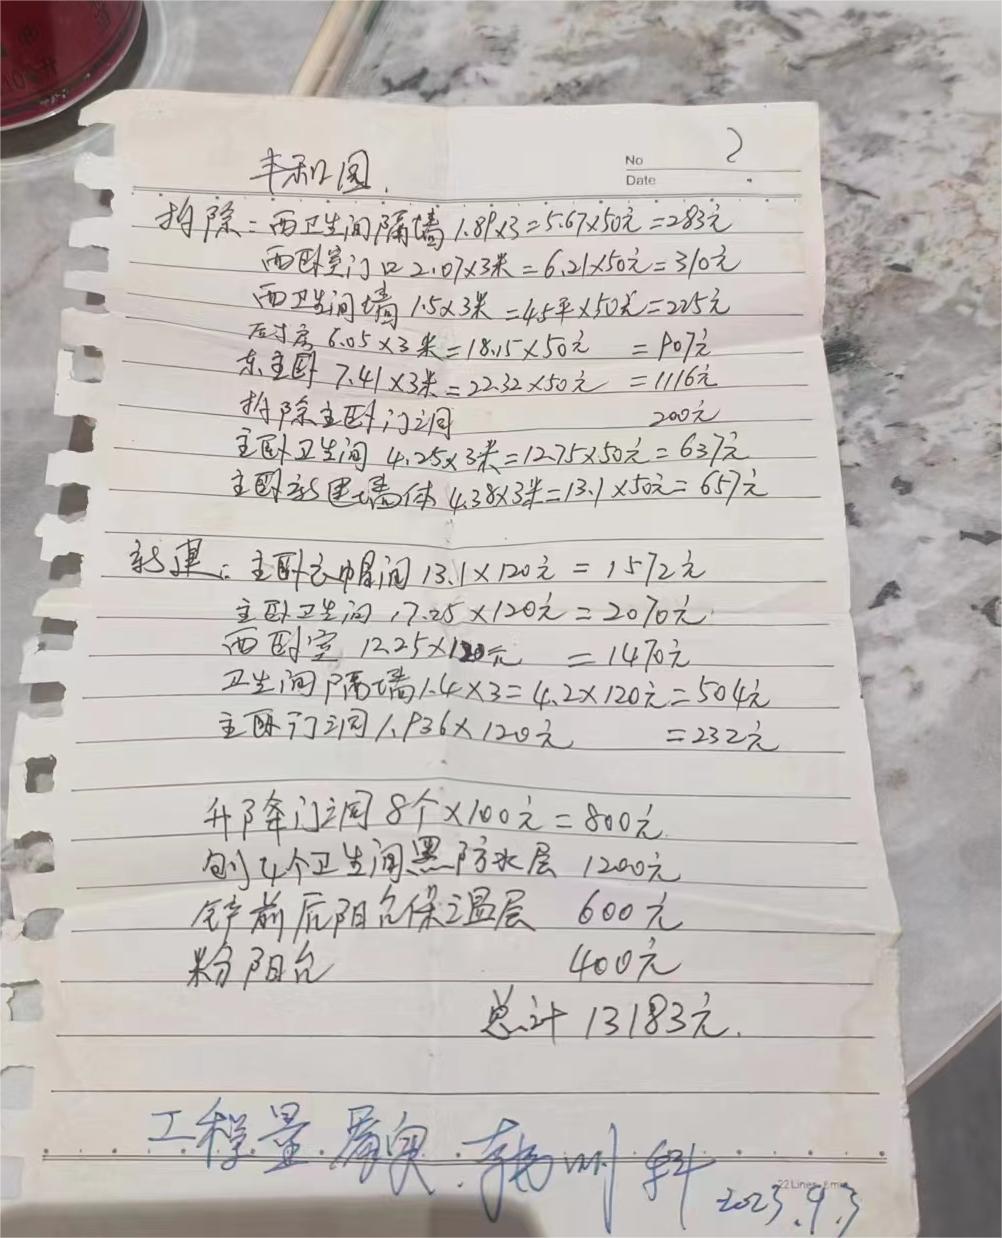 No 2
Date
丰和园.
拆除: 西卫生间隔墙 1.89×3=5.67×50元=283元
西卧室门口 2.07×3米=6.21×50元=310元
西卫生间墙 1.5×3米=4.5平×50元=225元
后寸房 6.05×3米=18.15×50元 =907元
东主卧 7.41×3米=22.32×50元 =1116元
拆除主卧门洞 200元
主卧卫生间 4.25×3米=12.75×50元=637元
主卧新建墙体 4.38×3米=13.1×50元=657元
新建: 主卧衣帽间 13.1×120元=1572元
主卧卫生间 17.25×120元=2070元
西卧室 12.25×120元 =1470元
卫生间隔墙1.4×3=4.2×120元=504元
主卧门洞 1.936×120元 =232元
升降门洞 8个×100元=800元
刨4个卫生间黑防水层 1200元
铲前后阳台保温层 600元
粉阳台 400元
总计 13183元.
工程量属实.
2023.9.3